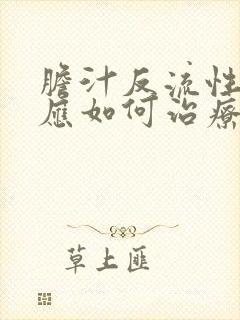 膽汁反流性
應如何治療
草上匪